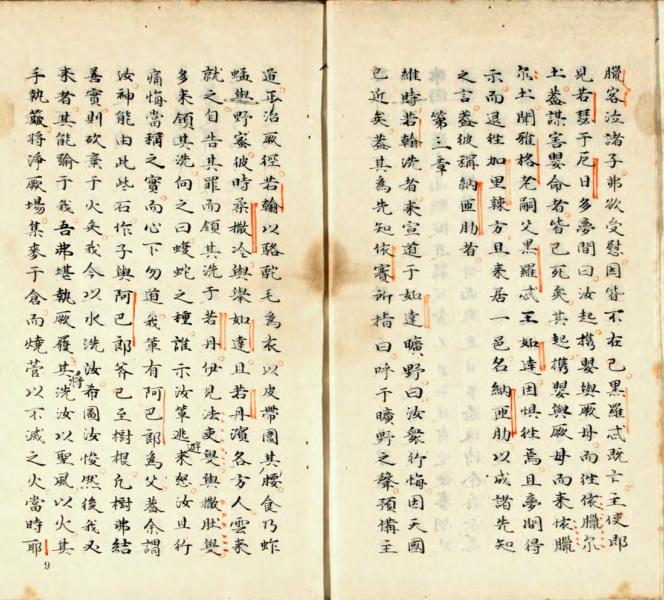 臘客泣諸子弗欲受慰因皆不在已黑羅忒既亡主使即
見若瑟于厄日多夢間曰汝起携嬰與厥母而徃依臘尔
土葢謀害嬰命者皆已死矣其起携嬰與厥母而来依臘
尔土聞雅格老嗣父黑羅忒王如達因惧徃焉且夢間得
示而退徃加里辣方且来居一邑名納匝肋以成諸先知
之言葢彼稱納匝肋者
第三章
維時若翰洗者来宣道于如達曠野曰汝衆行悔因天國
已近矣葢其為先知依賽所指曰呼于曠野之聲預備主
道正治厥徑若翰以駱駝毛為衣以皮帶圍其腰食乃蚱
蜢與野蜜彼時柔撒冷與舉如達且若丹濱各方人雲来
就之自告其罪而領其洗于若丹伊見法吏叟與撒肚叟
多来領其洗向之曰蝮蛇之種誰示汝輩逃来怒汝且行
痛悔當稱之實而心下勿道我輩有阿巴郎為父葢余謂
汝神能由此些石作子與阿巴郎斧已至樹根凢樹弗結
善實則砍棄于火矣我今以水洗汝希圖汝悛然後我又
来者其能踰于我吾弗堪執厥履其将洗汝以聖風以火其
手執簸将淨厥場集麥于倉而燒菅以不滅之火當時耶
9